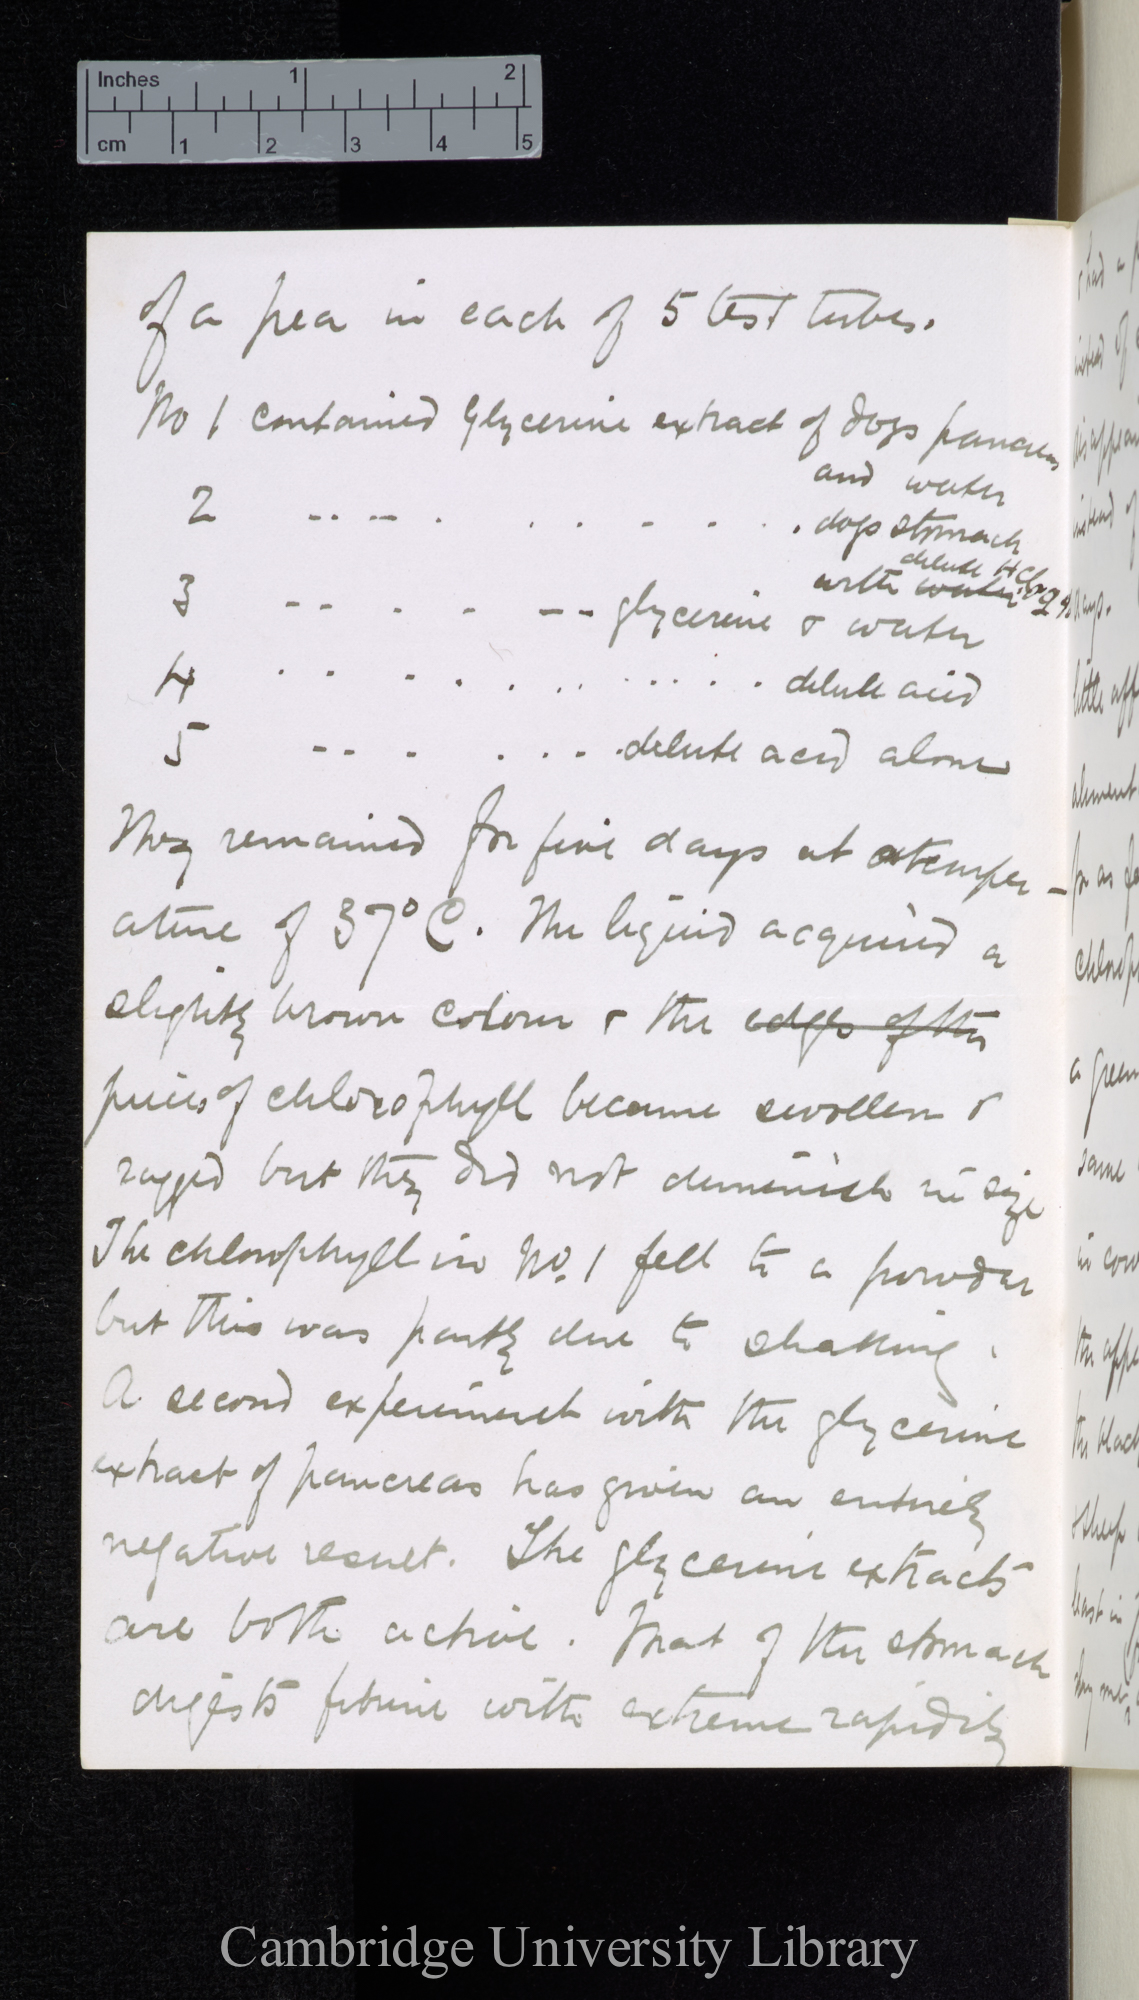 Inches 1 2
cm 1 2 3 4 5
of a pea in each of 5 test tubes.
No 1 contained Glycerine extract of dogs pancreas
and water
2 " " " " dogs stomach
dilute HCl
with water
3 " " " " glycerine & water
4 " " " " dilute acid
5 " " " " dilute acid alone
They remained for five days at a temper-
ature of 37° C. The liquid acquired a
slightly brown colour & the edges of the
pieces of chlorophyll became swollen &
ragged but they did not diminish in size
The chlorophyll in No. 1 fell to a powder
but this was partly due to shaking.
A second experiment with the glycerine
extract of pancreas has given an entirely
negative result. The glycerine extracts
are both active. That of the stomach
digests fibrine with extreme rapidity
Cambridge University Library